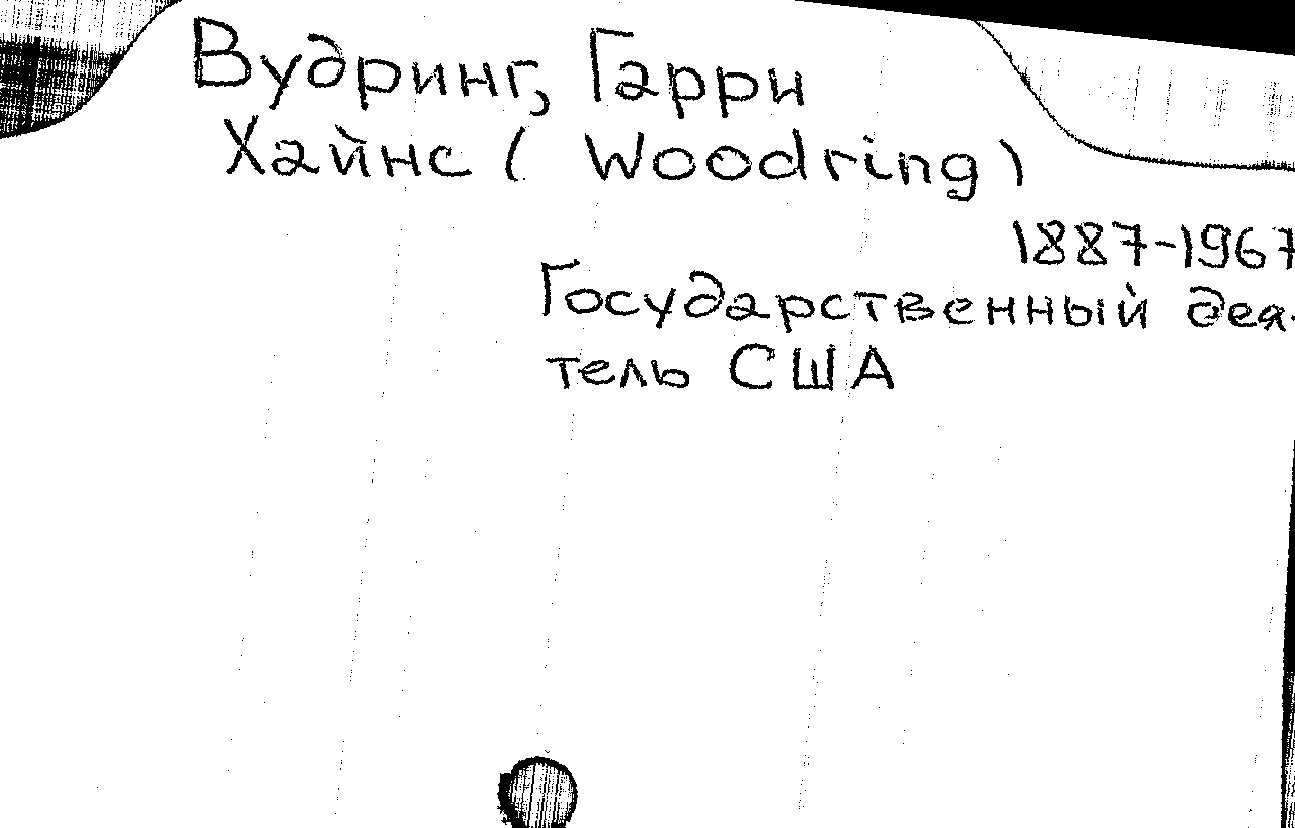 Вудринг, Гарри
Хайнс ( Woodring )
1887-1967
Государственный дея-
тель США